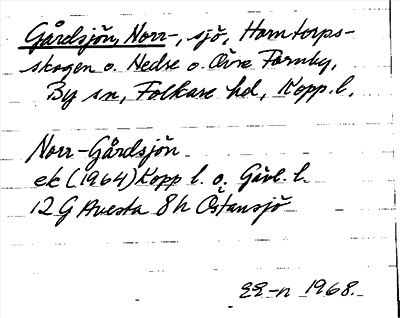 Gårdsjön, Norr-, sjö, Horntorps-
skogen o. Nedre o. Övre Fornby,
By sn, Folkare hd, Kopp. l.
Norr-Gårdsjön
ek (1964) Kopp l. o. Gävl. l.
12 G Avesta 8h Östansjö
EE-n 1968.